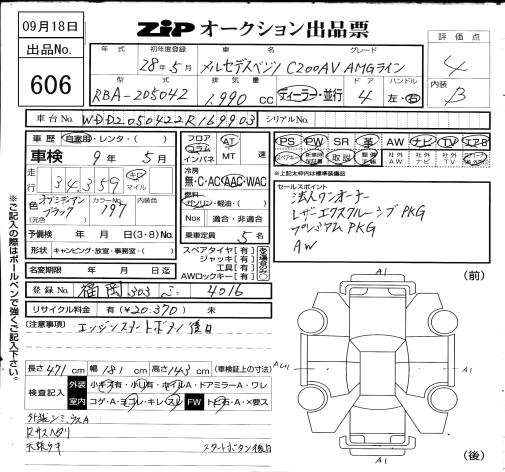 09月18日
ZIP オークション出品票
出品No.
606
評価点
4
内装
B
年式 初年度登録 車名 グレード
28年5月 メルセデスベンツ C200AV AMGライン
型式 排気量 ドア ハンドル
RBA-205042 1,990 cc ディーラー・並行 4 左・右
車台No. WDD2050422R169903 シリアルNo.
車歴 自家用・レンタ・( )
車検 9年5月
走行 34,359 キロ マイル
色 オブシディアンブラック (元色) カラーNo. 197 内装色
予備検 年 月 日(3・8)No.
形状 キャンピング・放室・事務室・( )
名変期限 年 月 日迄
フロア コラム インパネ
AT MT 速
冷房 無・C・AC・AAC・WAC
燃料 ガソリン・軽油・( )
Nox 適合・非適合
乗車定員 5名
スペアタイヤ[有]
ジャッキ[有]
工具[有]
AWロックキー[有]
PS PW SR 革 AW ナビ TV エアB
スペアキー 取説 社外AW 社外ナビ 社外TV
▲上記太枠内は標準装備品
セールスポイント
法人ワンオーナー
レザーエクスクルーシブPKG
プレミアムPKG
AW
登録No. 福岡 303 4016
リサイクル料金 有(¥20,370) 未
(注意事項)
エンジンスタートボタン後日
長さ 471 cm 幅 181 cm 高さ 143 cm (車検証上の寸法)
検査記入 外装 小キズ有・小凹有・ホイルA・ドアミラーA・ワレ
室内 コゲ・A・ヨゴレ・キレ・スレ FW トビ石・A・×要ス
天張ウキ
スタートボタン後日
ご記入の際はボールペンで強くご記入下さい。
(前)
A1
A1
A1
(後)